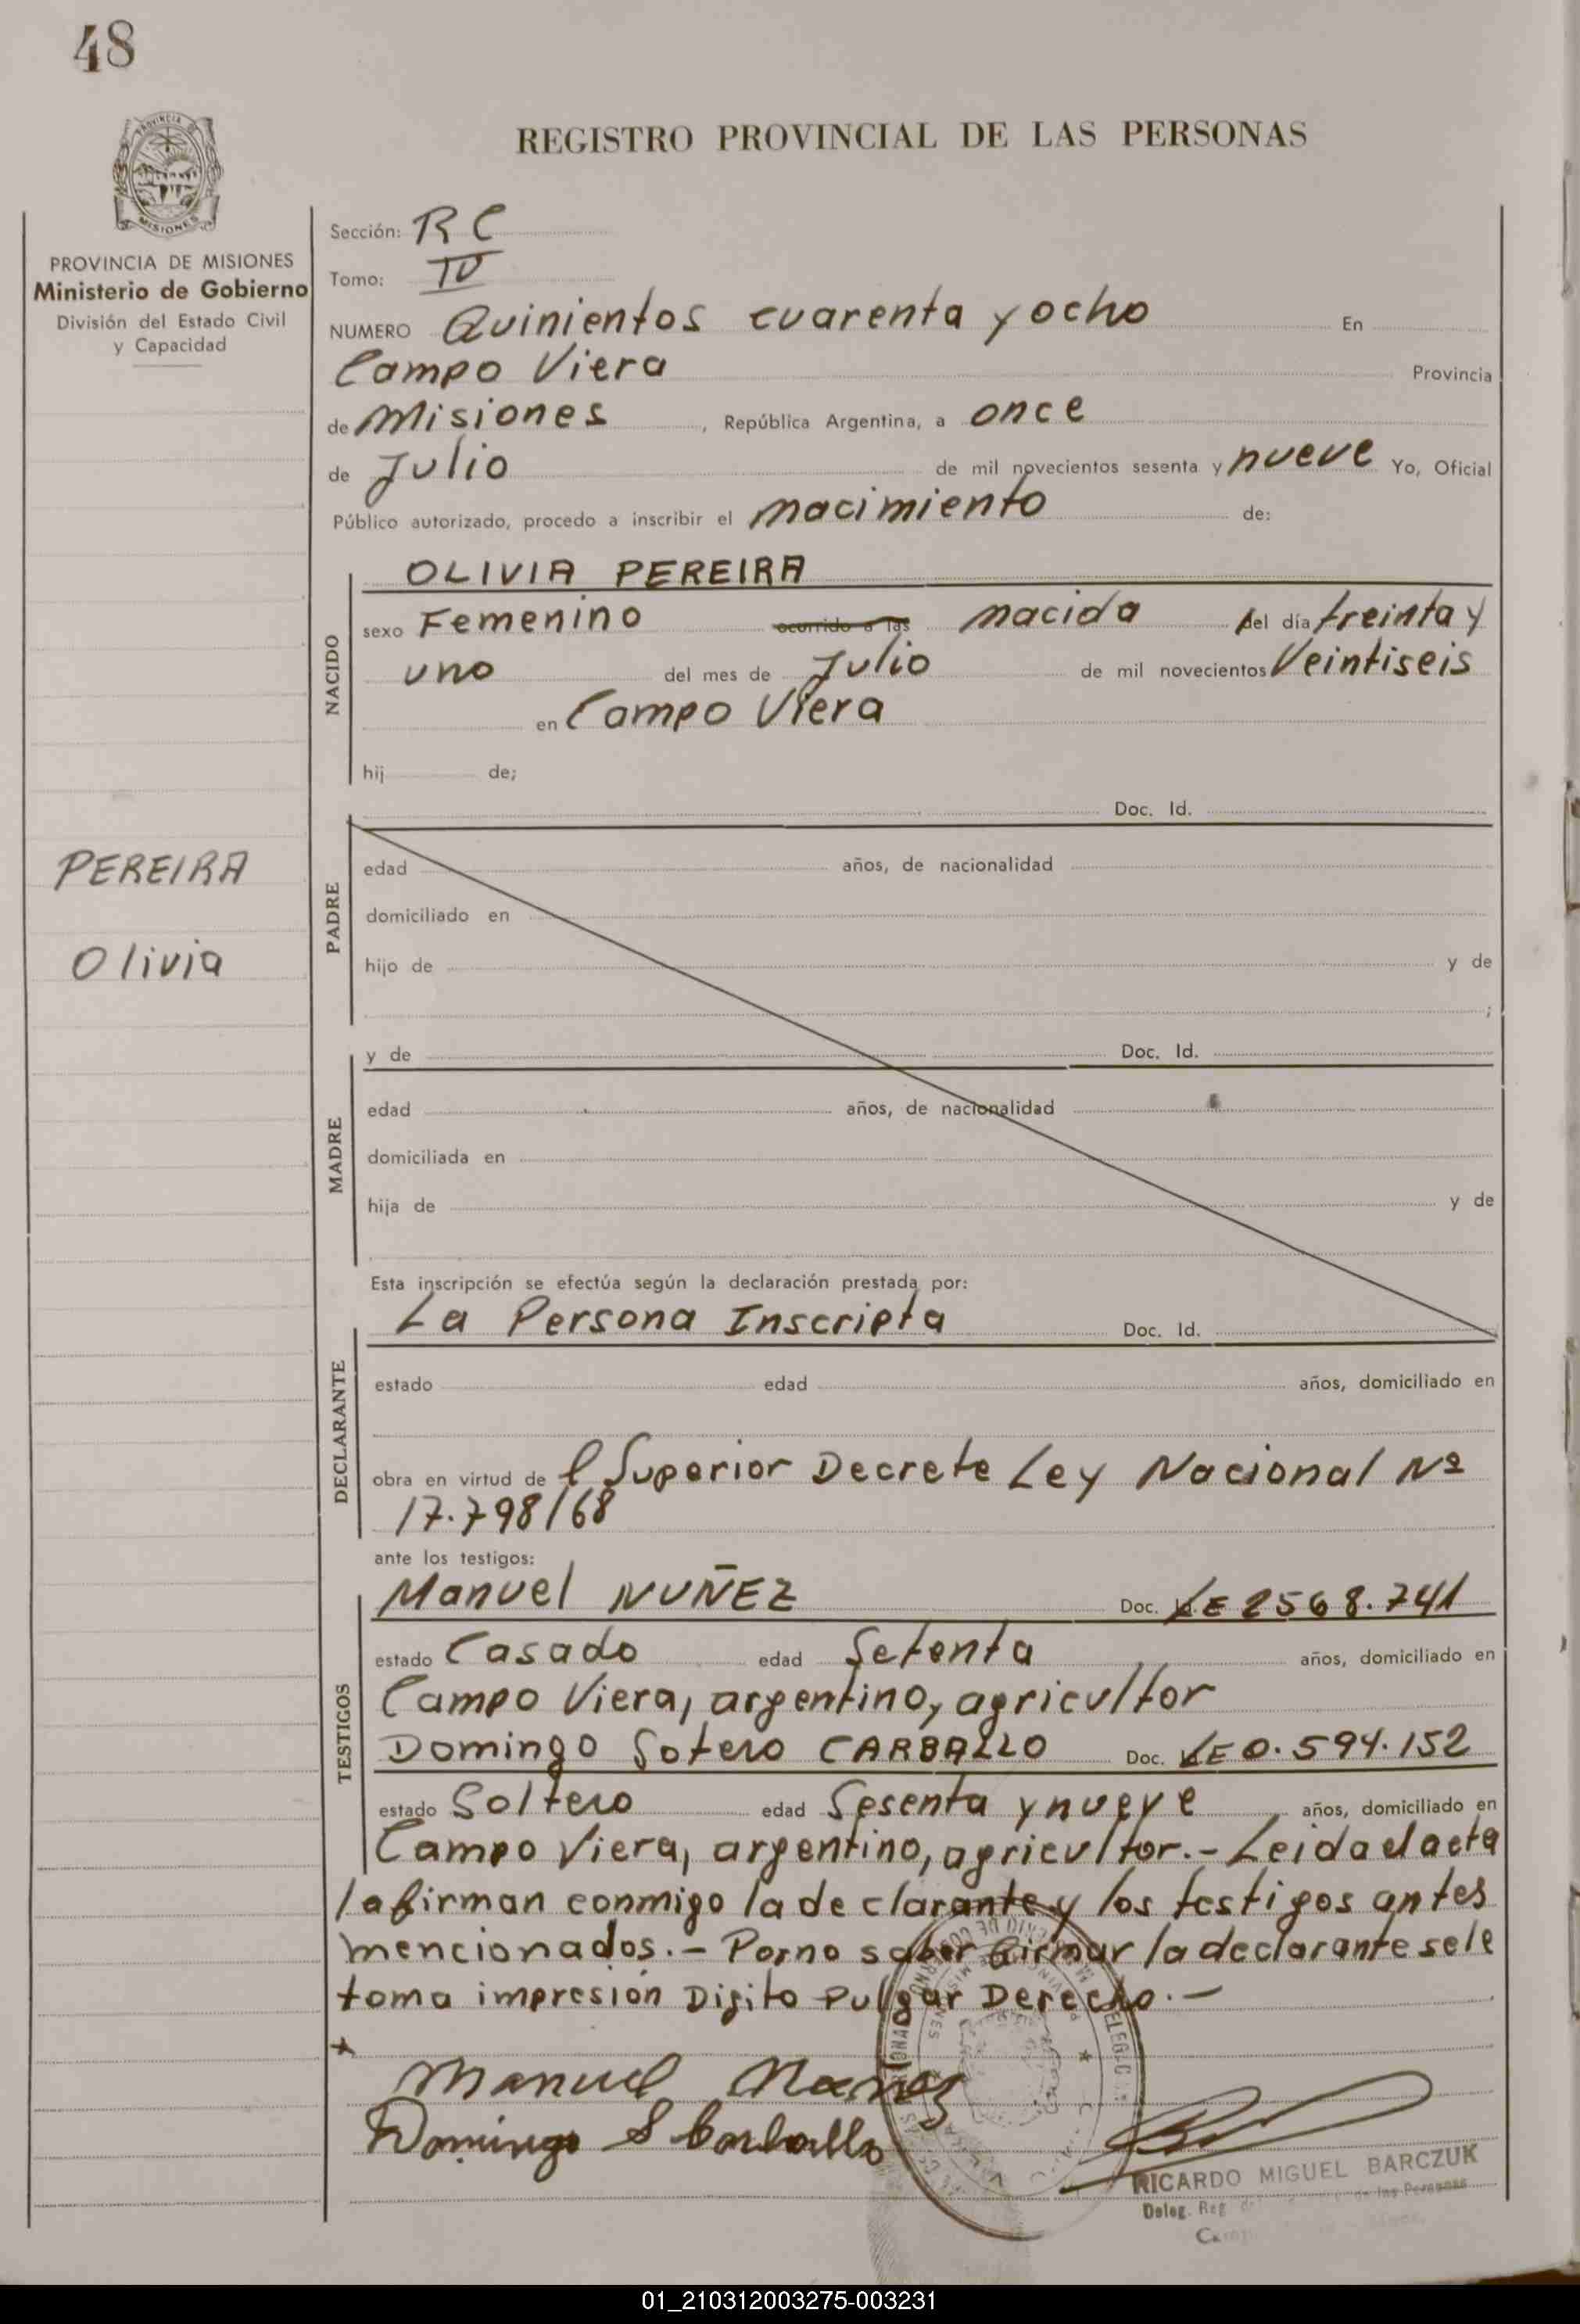 48
REGISTRO PROVINCIAL DE LAS PERSONAS
PROVINCIA DE MISIONES
Ministerio de Gobierno
División del Estado Civil
y Capacidad
Sección: R C
Tomo: IV
NUMERO Quinientos cuarenta y ocho En
Campo Viera Provincia
de Misiones, República Argentina, a once
de Julio de mil novecientos sesenta y nueve Yo, Oficial
Público autorizado, procedo a inscribir el nacimiento de:
NACIDO
OLIVIA PEREIRA
sexo Femenino ocurrido a las nacida del día treinta y
uno del mes de Julio de mil novecientos Veintiseis
en Campo Viera
hij de;
PEREIRA
Olivia
PADRE
Doc. Id.
edad años, de nacionalidad
domiciliado en
hijo de y de
;
MADRE
y de Doc. Id.
edad años, de nacionalidad
domiciliada en
hija de y de
Esta inscripción se efectúa según la declaración prestada por:
DECLARANTE
La Persona Inscripta Doc. Id.
estado edad años, domiciliado en
obra en virtud de l Superior Decrete Ley Nacional Nº
17.798/68
ante los testigos:
TESTIGOS
Manuel NUÑEZ Doc. LE 2568.741
estado Casado edad Setenta años, domiciliado en
Campo Viera, argentino, agricultor
Domingo Sotero CARBALLO Doc. LE 0.594.152
estado Soltero edad Sesenta y nueve años, domiciliado en
Campo Viera, argentino, agricultor.- Leida el acta
la firman conmigo la declarante y los testigos antes
mencionados.- Por no saber firmar la declarante se le
toma impresión Digito Pulgar Derecho.-
Manuel Nuñez
Domingo S Carballo
RICARDO MIGUEL BARCZUK
Deleg. Reg de las Personas
01_210312003275-003231